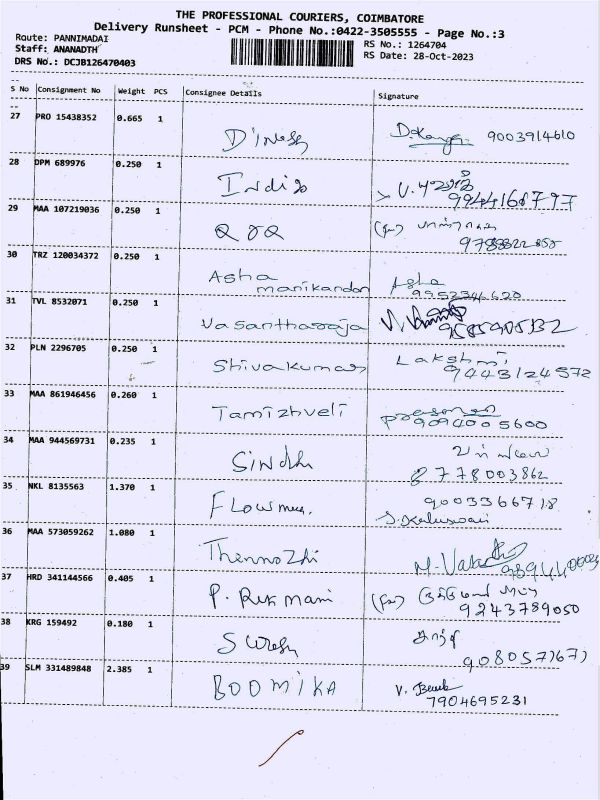 THE PROFESSIONAL COURIERS, COIMBATORE
Delivery Runsheet - PCM - Phone No.:0422-3505555 - Page No.:3
Route: PANNIMADAI
Staff: ANANADTH
DRS No.: DCJB126470403
RS No.: 1264704
RS Date: 28-Oct-2023
S No Consignment No Weight PCS Consignee Details Signature
27 PRO 15438352 0.665 1 Dinesh 9003914610
28 DPM 689976 0.250 1 Indigo
29 MAA 107219036 0.250 1
30 TRZ 120034372 0.250 1 Asha manikandan Asha 9952346620
31 TVL 8532071 0.250 1 Vasantharaja
32 PLN 2296705 0.250 1 Shivakumar Lakshmi 9443124572
33 MAA 861946456 0.260 1 Tamizhveli 9094005600
34 MAA 944569731 0.235 1 Sindhu 8778003862
35 NKL 8135563 1.370 1 9003366718
36 MAA 573059262 1.080 1 Thennozhi
37 HRD 341144566 0.405 1 P. Rukmani 9243789050
38 KRG 159492 0.180 1 Suresh
39 SLM 331489848 2.385 1 BOOMIKA 7904695231